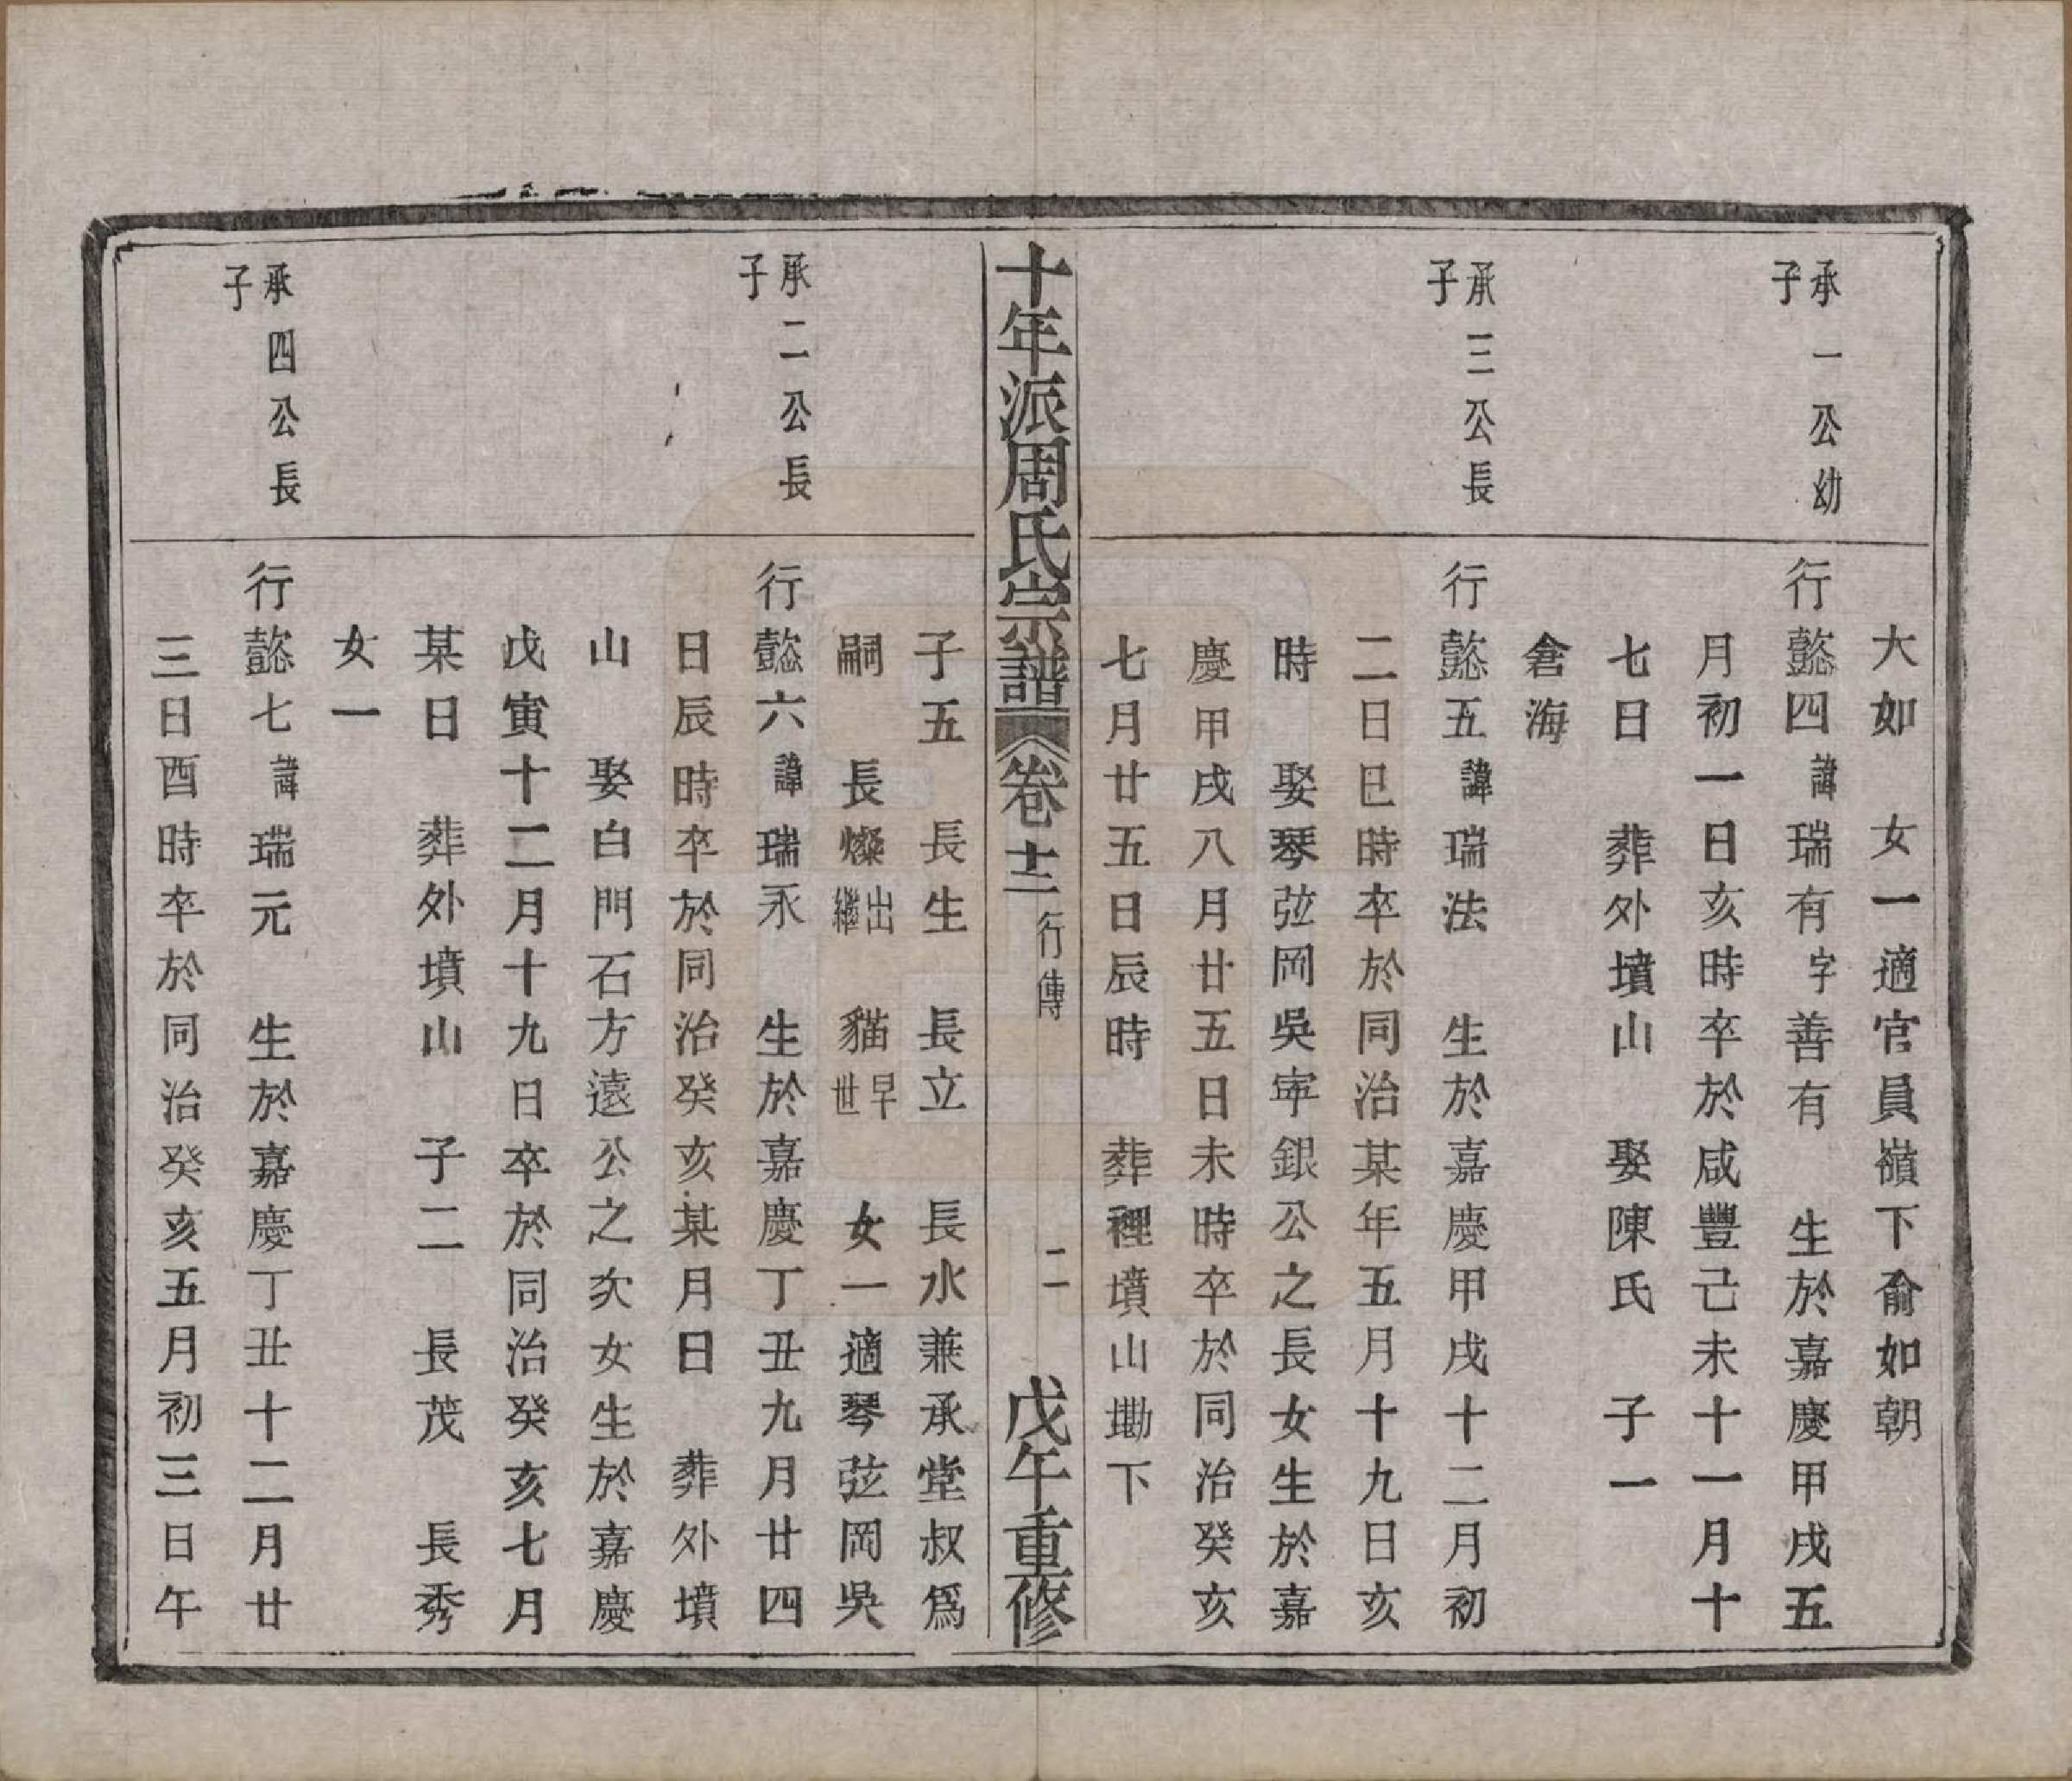 大如 女一適官員嶺下俞如朝
承一公幼子
行懿四諱瑞有字善有 生於嘉慶甲戌五
月初一日亥時卒於咸豐己未十一月十
七日 葬外墳山 娶陳氏 子一
倉海
承三公長子
行懿五諱瑞法 生於嘉慶甲戌十二月初
二日巳時卒於同治某年五月十九日亥
時 娶琴弦岡吳寕銀公之長女生於嘉
慶甲戌八月廿五日未時卒於同治癸亥
七月廿五日辰時 葬裡墳山墈下
十年派周氏宗譜 卷十二 行傳 二 戊午重修
子五 長生 長立 長水兼承堂叔爲
嗣 長燦出繼 貓早世 女一適琴弦岡吳
承二公長子
行懿六諱瑞永 生於嘉慶丁丑九月廿四
日辰時卒於同治癸亥某月日 葬外墳
山 娶白門石方遠公之次女生於嘉慶
戊寅十二月十九日卒於同治癸亥七月
某日 葬外墳山 子二 長茂 長秀
女一
承四公長子
行懿七諱瑞元 生於嘉慶丁丑十二月廿
三日酉時卒於同治癸亥五月初三日午